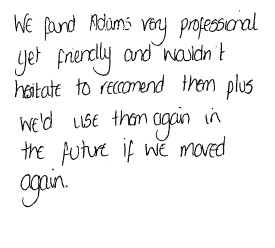 We found Adams very professional
yet friendly and wouldn't
hesitate to reccomend them plus
we'd use them again in
the future if we moved
again.